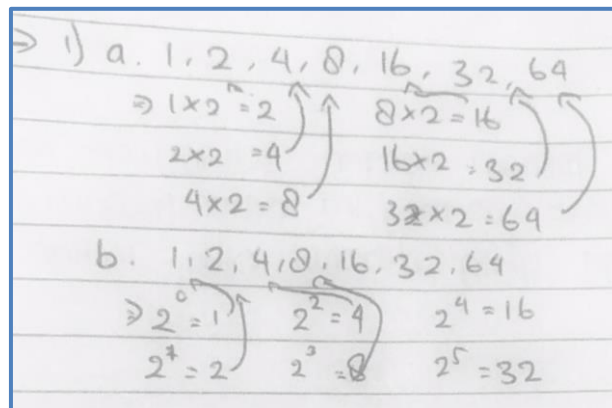 ⇒ 1) a. 1, 2, 4, 8, 16, 32, 64
⇒ 1×2 = 2 8×2 = 16
2×2 = 4 16×2 = 32
4×2 = 8 32×2 = 64
b. 1, 2, 4, 8, 16, 32, 64
⇒ 2⁰ = 1 2² = 4 2⁴ = 16
2¹ = 2 2³ = 8 2⁵ = 32